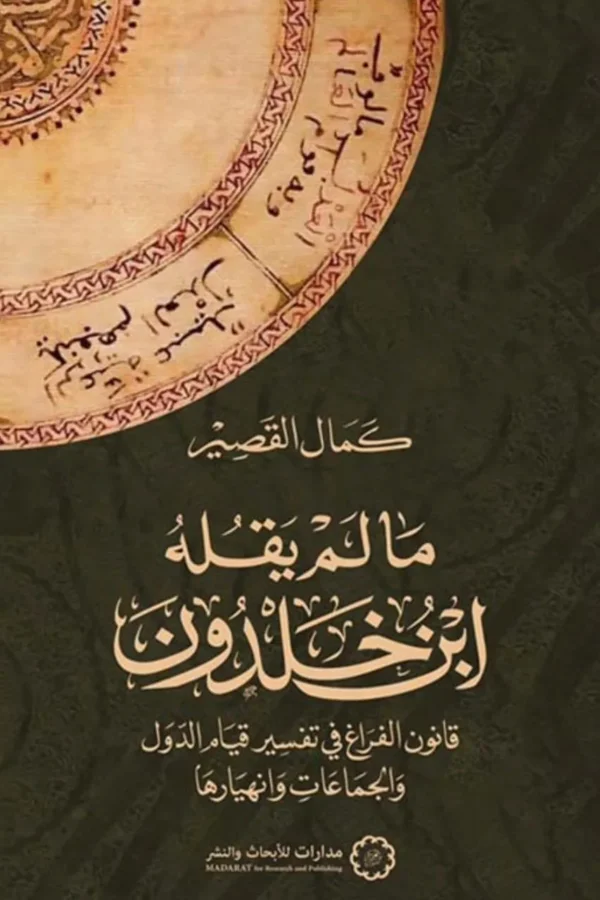 كَمَال القَصِيْر
مَا لَمْ يَقُلهُ
ابْنُ خَلْدُونَ
قانون الفَرَاغ في تفسِير قيَام الدَوَل
وَالجمَاعَاتِ وَانهيَارهَا
مدارات للأبحاث والنشر
MADARAT for Research and Publishing